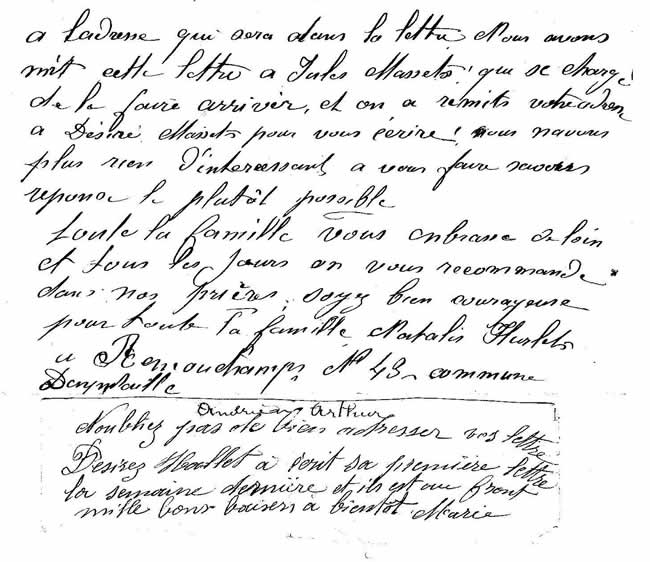 a Ladresse qui sera dans la lettre. Nous avons
mit cette lettre a Jules Massets! qui se charge
de le faire arriver, et on a remits votre adresse
a Désiré Massets pour vous écrire! nous navons
plus rien d'interessant a vous faire savoirs
reponse le plutôt possible
toute la famille vous enbrasse de loin
et tous les jours on vous recommande
dans nos prières, soyez bien courageuse
pour toute Ta famille, Natalis Hurlets
a Remouchamps No 43 commune
Andrian Arthur
Noubliez pas de bien adresser vos lettre
Desirez Hallet à écrit sa première lettre
la semaine dernière et ils est au front
mille bons baisers a bientot Marie